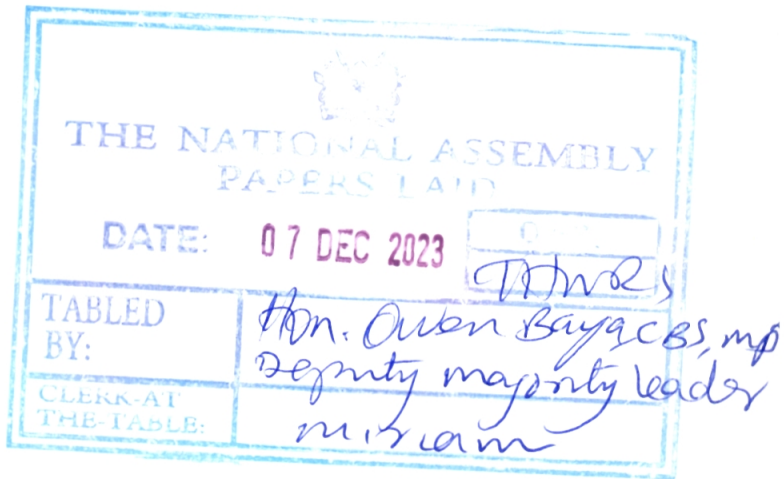 THE NATIONAL ASSEMBLY
PAPERS LAID
DATE: 07 DEC 2023
DAY
THURS
TABLED BY: Hon. Owen Baya, CBS, MP
Deputy majority leader
CLERK-AT THE-TABLE: miriam